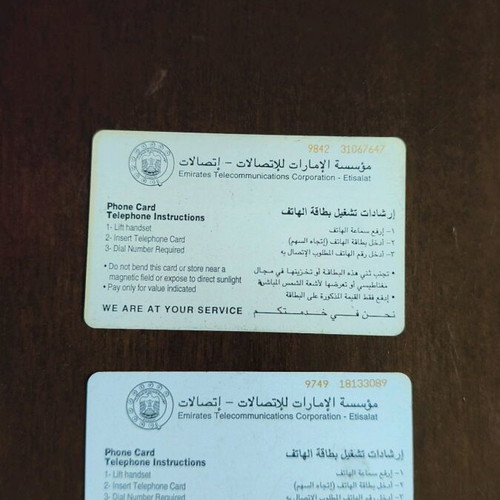 9842 31067647
مؤسسة الإمارات للإتصالات - إتصالات
Emirates Telecommunications Corporation - Etisalat
Phone Card
Telephone Instructions
1- Lift handset
2- Insert Telephone Card
3- Dial Number Required
• Do not bend this card or store near a
magnetic field or expose to direct sunlight
• Pay only for value indicated
WE ARE AT YOUR SERVICE
إرشادات تشغيل بطاقة الهاتف
١- إرفع سماعة الهاتف
٢- أدخل بطاقة الهاتف (إتجاه السهم)
٣- أدخل رقم الهاتف المطلوب الإتصال به
• تجنب ثني هذه البطاقة أو تخزينها في مجال
مغناطيسي أو تعرضها لأشعة الشمس المباشرة
• إدفع فقط القيمة المذكورة على البطاقة
نحن في خدمتكم
9749 18133089
مؤسسة الإمارات للإتصالات - إتصالات
Emirates Telecommunications Corporation - Etisalat
Phone Card
Telephone Instructions
1- Lift handset
2- Insert Telephone Card
3- Dial Number Required
إرشادات تشغيل بطاقة الهاتف
١- إرفع سماعة الهاتف
٢- أدخل بطاقة الهاتف (إتجاه السهم)